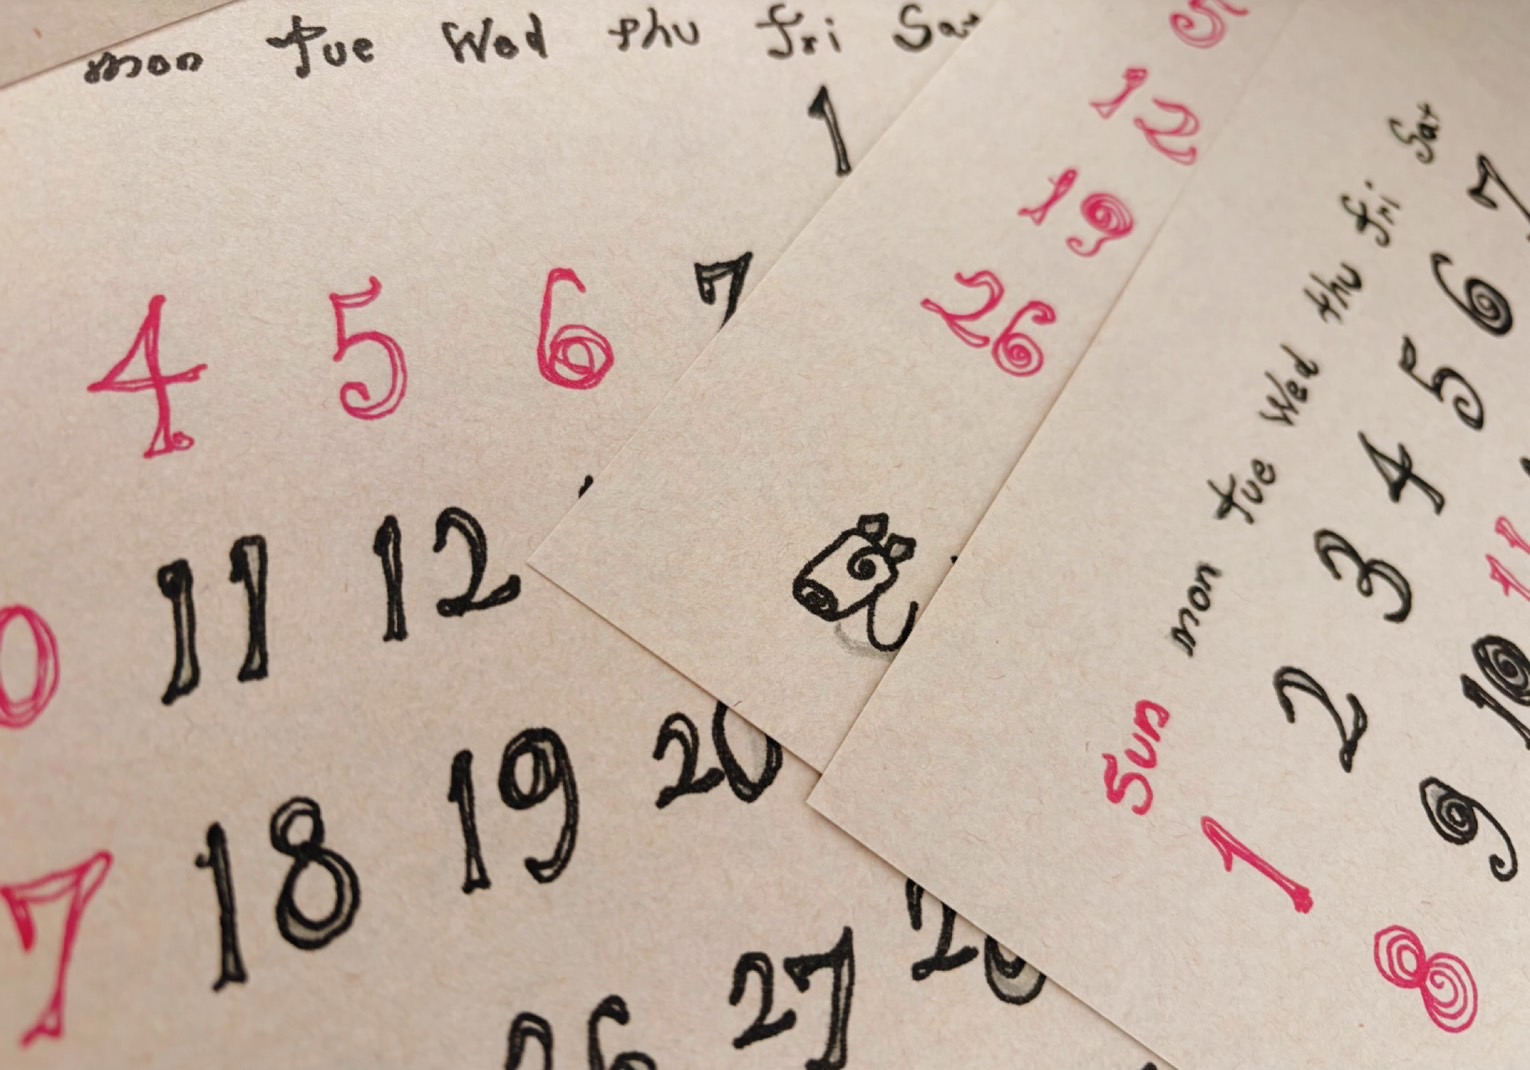 mon tue Wed thu fri Sat
1
4 5 6 7
0 11 12
7 18 19 20
26 27 28
5
12
19
26
Sun mon tue Wed thu fri Sat
1 2 3 4 5 6 7
8 9 10 11